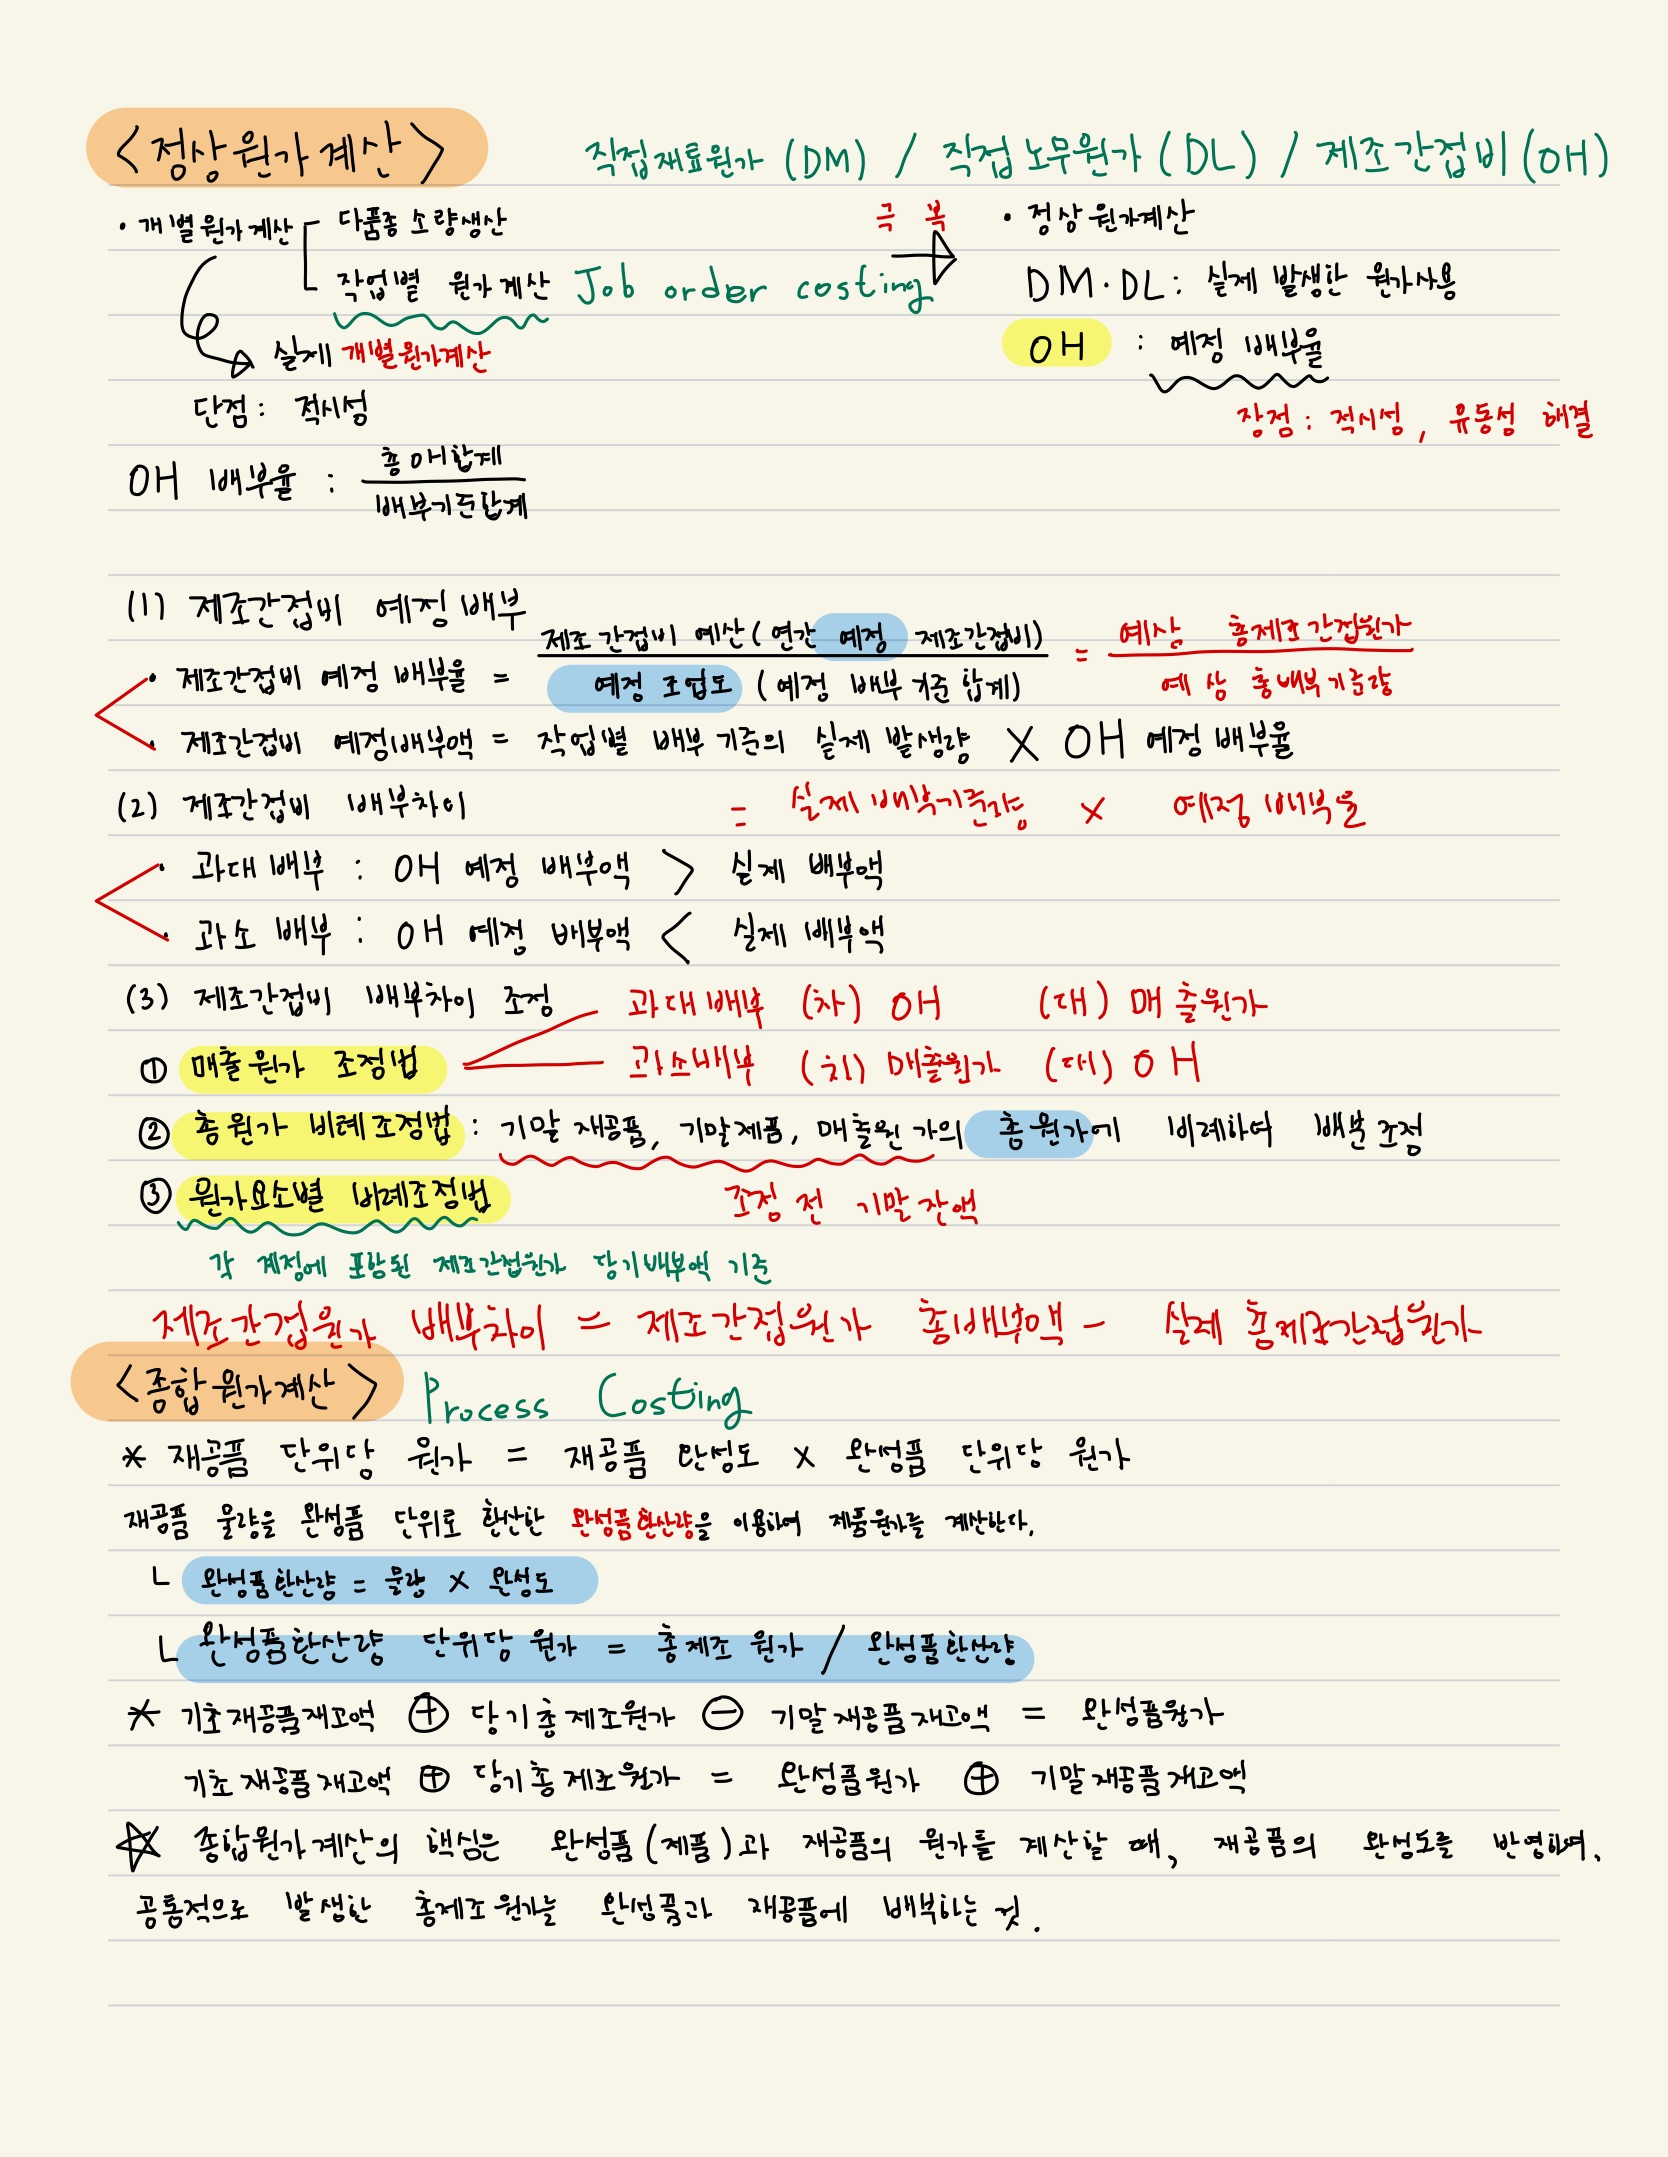 <정상원가계산>
직접재료원가 (DM) / 직접노무원가 (DL) / 제조간접비 (OH)
· 개별원가계산
다품종 소량생산
작업별 원가계산 Job order costing
실제 개별원가계산
단점 : 적시성
극복
· 정상원가계산
DM·DL : 실제 발생한 원가사용
OH : 예정 배부율
장점 : 적시성, 유동성 해결
OH 배부율 : 총OH합계
배부기준합계
(1) 제조간접비 예정배부
· 제조간접비 예정 배부율 = 제조간접비 예산 (연간 예정 제조간접비) = 예상 총제조간접원가
예정 조업도 (예정 배부 기준 합계) 예상 총배부기준량
· 제조간접비 예정배부액 = 작업별 배부 기준의 실제 발생량 X OH 예정 배부율
(2) 제조간접비 배부차이 = 실제 배부기준량 x 예정 배부율
· 과대 배부 : OH 예정 배부액 > 실제 배부액
· 과소 배부 : OH 예정 배부액 < 실제 배부액
(3) 제조간접비 배부차이 조정 과대배부 (차) OH (대) 매출원가
① 매출원가 조정법 과소배부 (차) 매출원가 (대) OH
② 총원가 비례조정법 : 기말 재공품, 기말제품, 매출원가의 총원가에 비례하여 배분 조정
③ 원가요소별 비례조정법 조정 전 기말 잔액
각 계정에 포함된 제조간접원가 당기배부액 기준
제조간접원가 배부차이 = 제조간접원가 총배부액 - 실제 총제조간접원가
<종합원가계산> Process Costing
* 재공품 단위당 원가 = 재공품 완성도 x 완성품 단위당 원가
재공품 물량을 완성품 단위로 환산한 완성품환산량을 이용하여 제품원가를 계산한다.
ㄴ 완성품환산량 = 물량 x 완성도
ㄴ 완성품환산량 단위당 원가 = 총제조원가 / 완성품환산량
* 기초재공품재고액 ⊕ 당기총제조원가 ⊖ 기말재공품재고액 = 완성품원가
기초재공품재고액 ⊕ 당기총제조원가 = 완성품원가 ⊕ 기말재공품재고액
☆ 종합원가계산의 핵심은 완성품(제품)과 재공품의 원가를 계산할 때, 재공품의 완성도를 반영하여,
공통적으로 발생한 총제조원가를 완성품과 재공품에 배부하는 것.